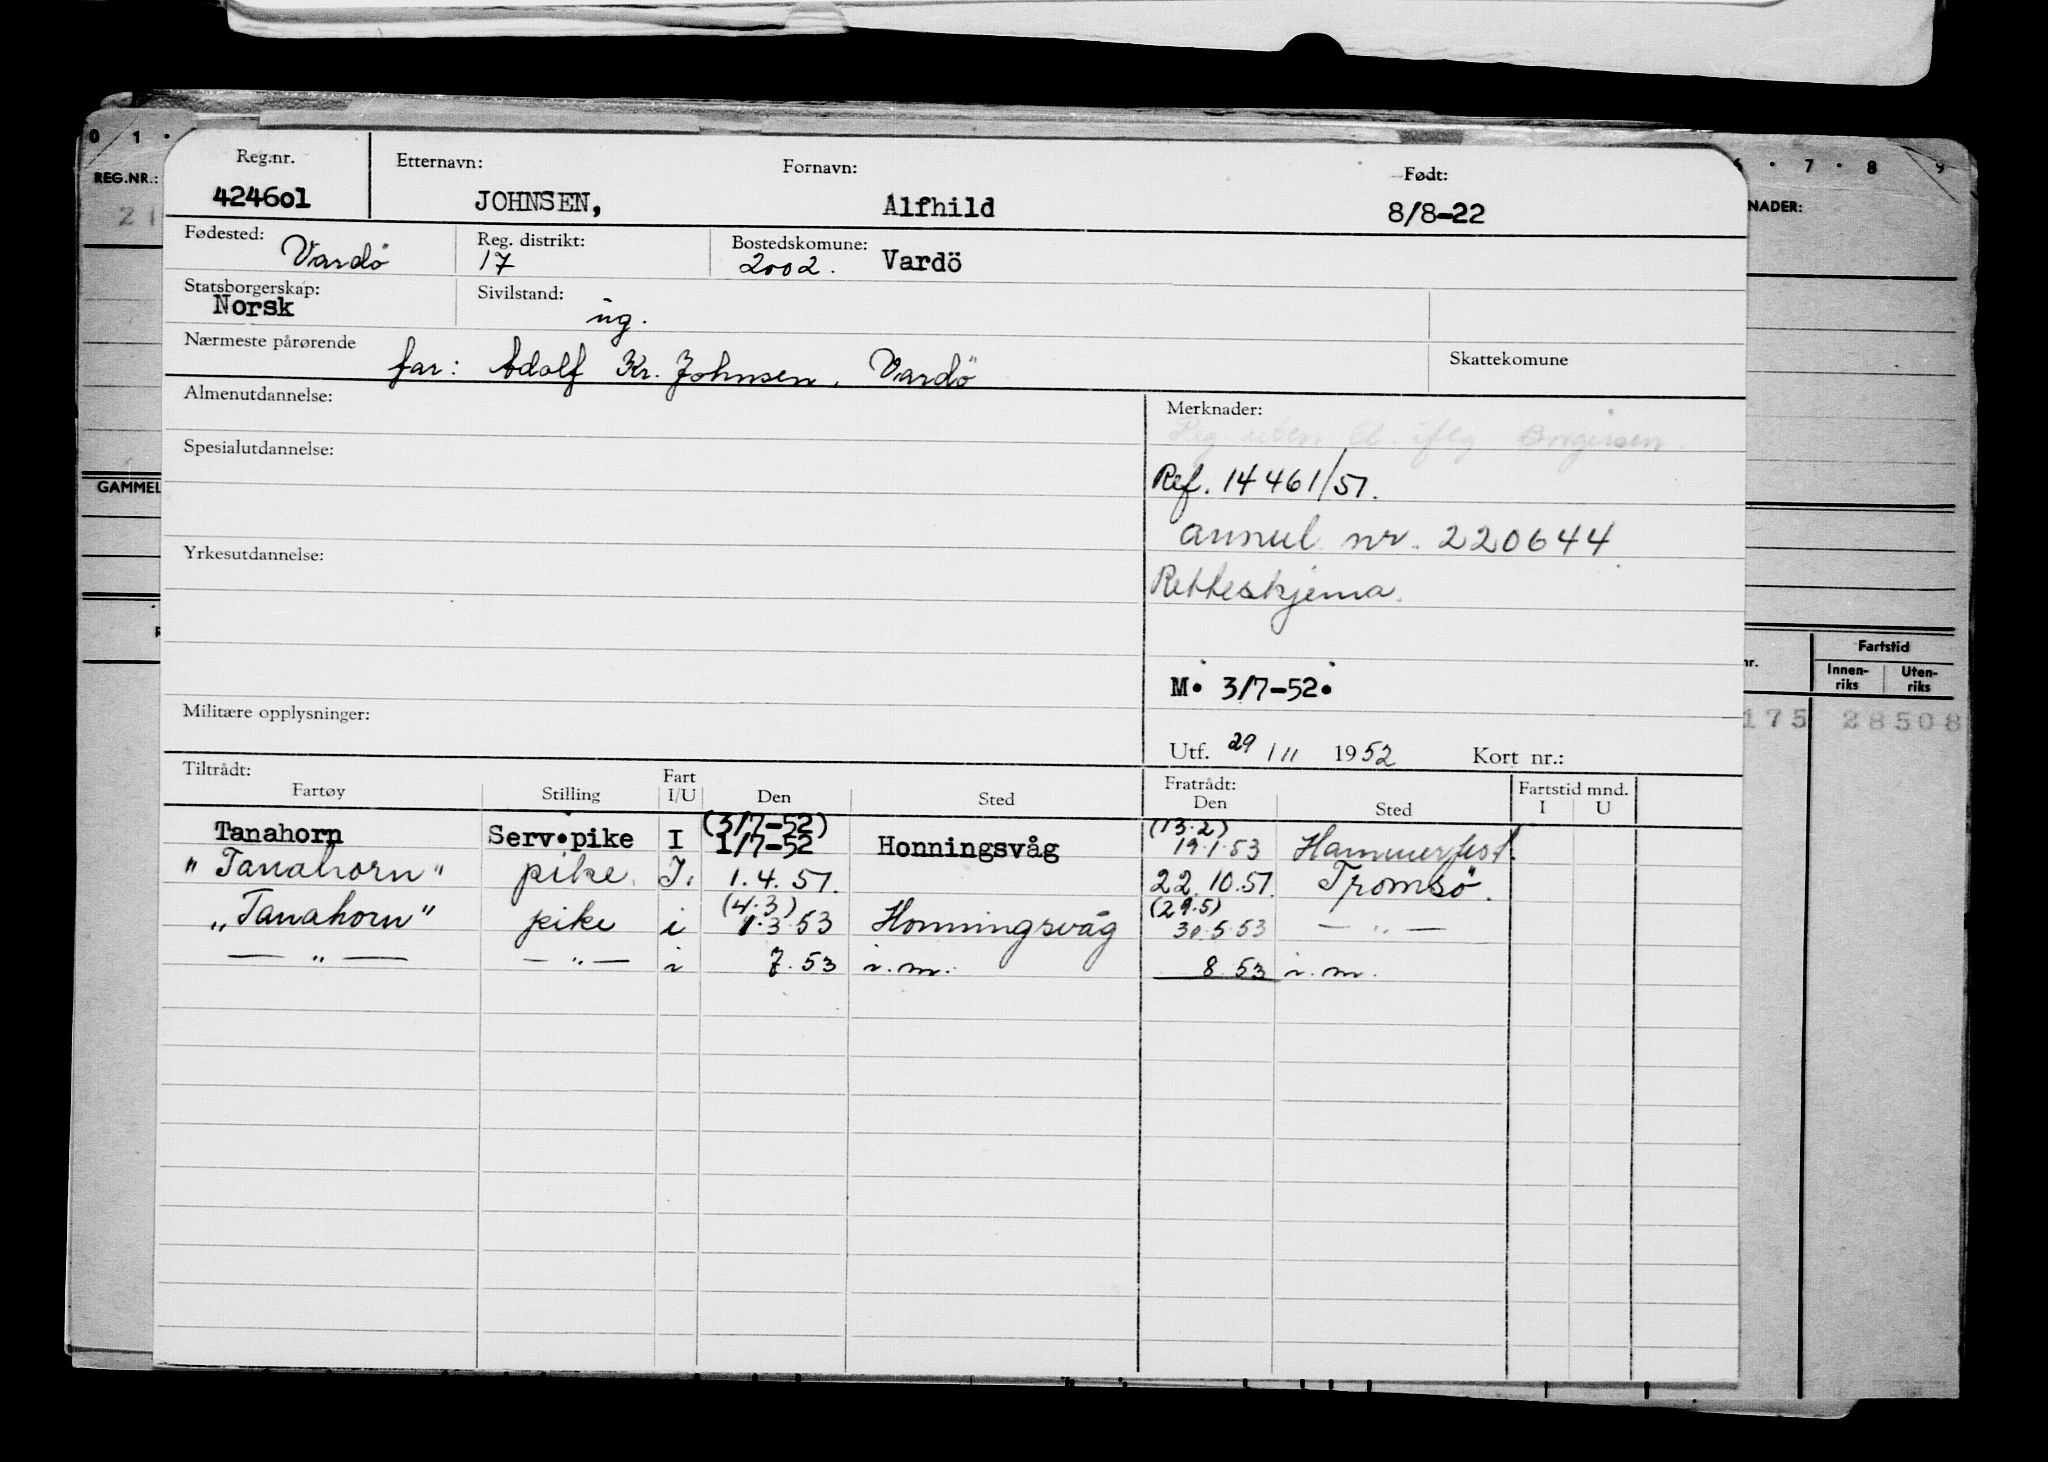 0 1 · 6 · 7 · 8 9
REG.NR.: NADER:
21
GAMMEL
R nr. Fartstid
Innen-riks Uten-riks
175 28508
Reg.nr. Etternavn: Fornavn: Født:
424601 JOHNSEN, Alfhild 8/8-22
Fødested: Vardö Reg. distrikt: 17 Bostedskomune: 2002. Vardö
Statsborgerskap: Norsk Sivilstand: ug.
Nærmeste pårørende far: Adolf Kr. Johnsen, Vardö Skattekomune
Almenutdannelse: Merknader:
uten
Spesialutdannelse: Ref. 14461/51.
annul. nr. 220644
Yrkesutdannelse: Retteskjema.
M. 3/7-52.
Militære opplysninger:
Utf. 29/11 1952 Kort nr.:
Tiltrådt: Fratrådt: Fartstid mnd.
Fartøy Stilling Fart I/U Den Sted Den Sted I U
Tanahorn Serv.pike I (3/7-52) 1/7-52 Honningsvåg (13.2) 19.1.53 Hammerfest.
"Tanahorn" pike. I. 1.4.51. 22.10.51. Tromsö.
"Tanahorn" pike i (4.3) 1.3.53 Honningsvåg (29.5) 30.5.53 — " —
— " — — " — i 7.53 i.m. 8.53 i.m.